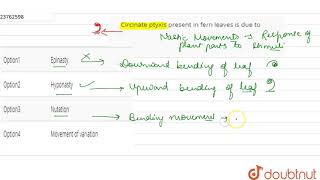 23762598
Circinate ptyxis present in fern leaves is due to
2
Nastic Movements → Response of
plant parts to stimuli
Option1 Epinasty × → Downward bending of leaf
Option2 Hyponasty → Upward bending of leaf 2
Option3 Nutation → Bending movement →
Option4 Movement of variation
doubtnut